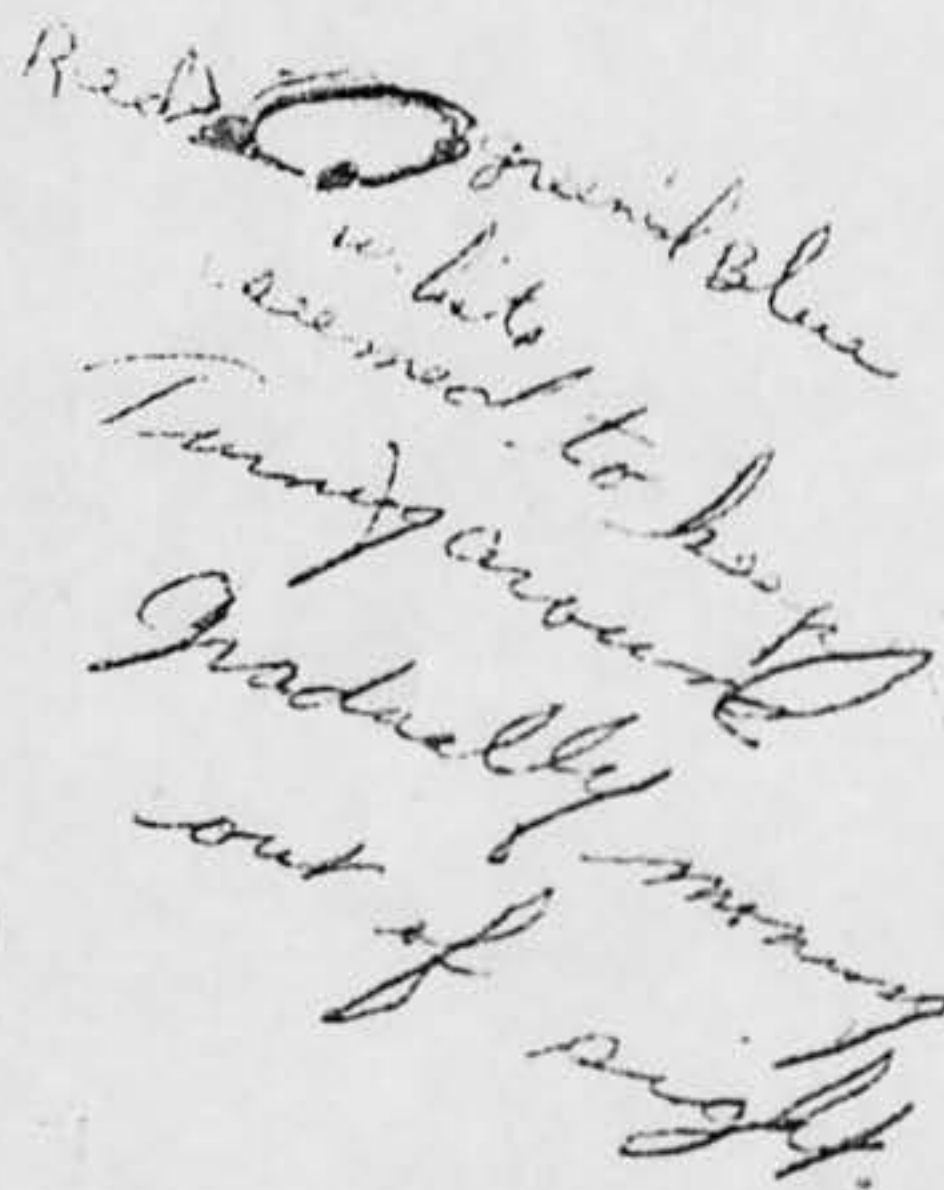 Red greenish Blue
white
seemed to keep
Turning around
Gradually moving
out of sight.